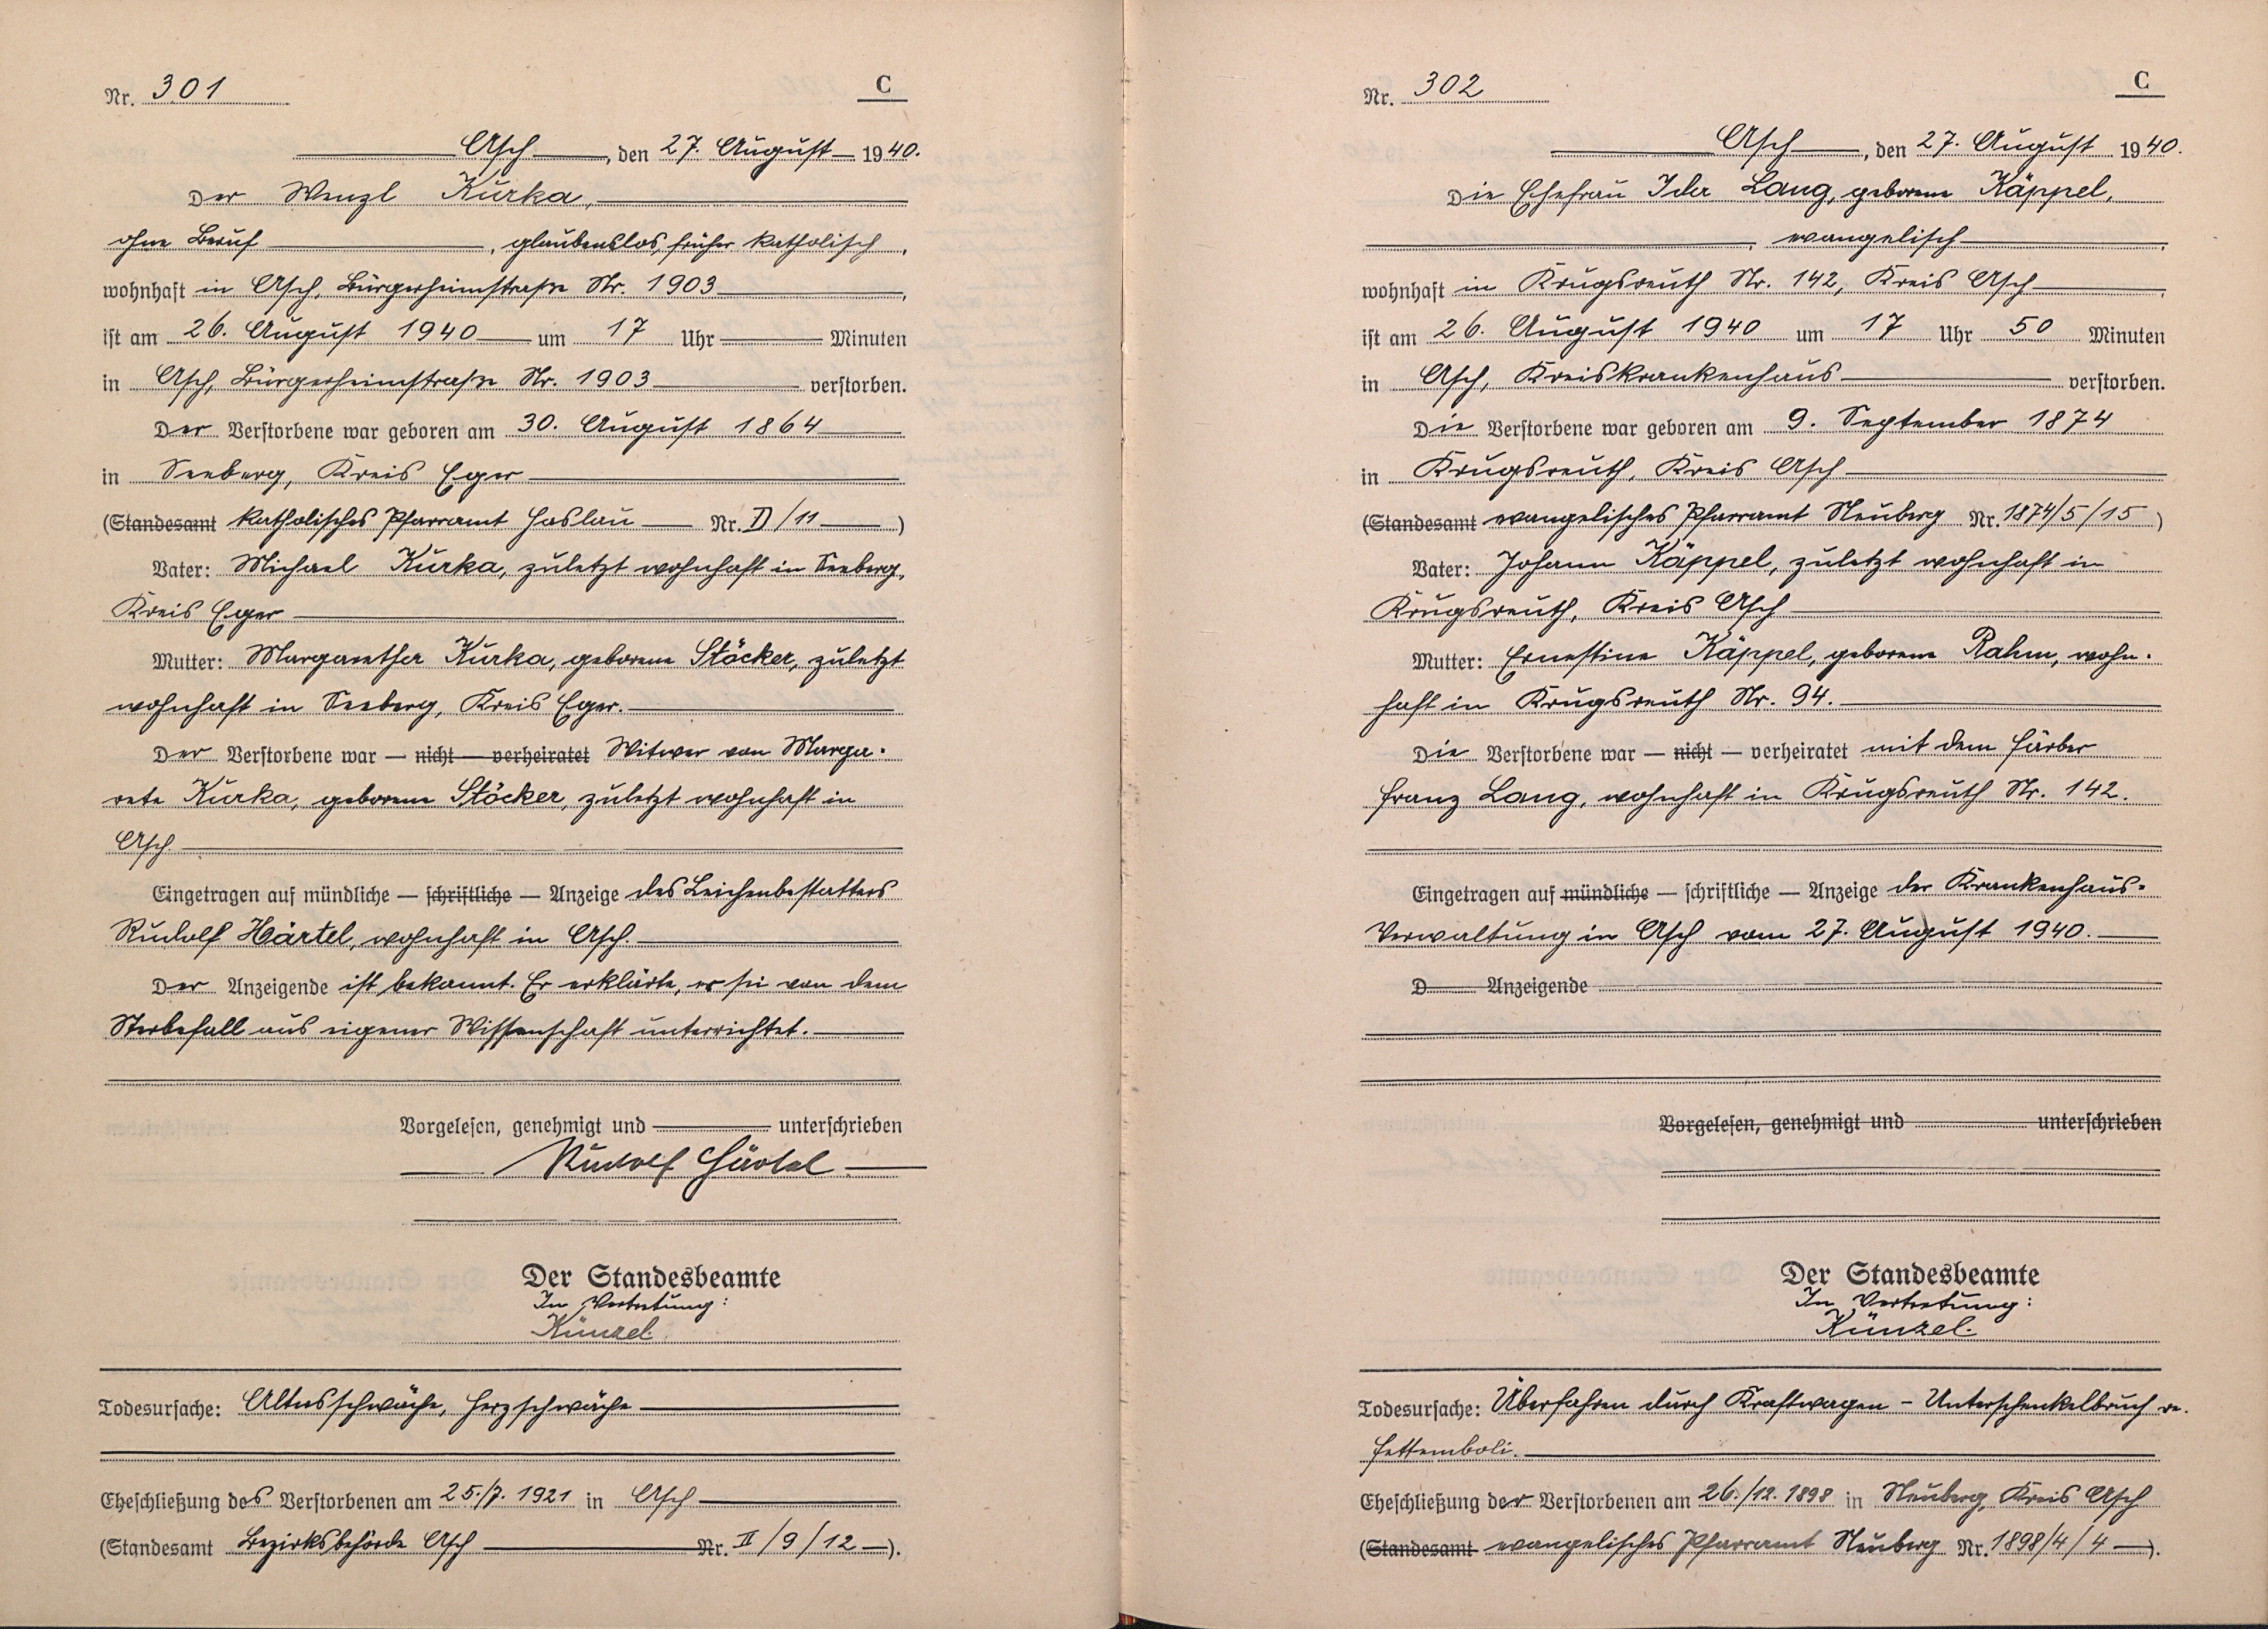 Nr. 301
C
Asch, den 27. August 1940.
Der Wenzl Kurka,
ohne Beruf, glaubenslos, früher katholisch,
wohnhaft in Asch, Bürgerheimstraße Nr. 1903,
ist am 26. August 1940 um 17 Uhr Minuten
in Asch, Bürgerheimstraße Nr. 1903 verstorben.
Der Verstorbene war geboren am 30. August 1864
in Seeberg, Kreis Eger
(Standesamt katholisches Pfarramt Haslau Nr. D/11)
Vater: Michael Kurka, zuletzt wohnhaft in Seeberg,
Kreis Eger
Mutter: Margaretha Kurka, geborene Stöcker, zuletzt
wohnhaft in Seeberg, Kreis Eger.
Der Verstorbene war — nicht — verheiratet Witwer von Marga-
rete Kurka, geborene Stöcker, zuletzt wohnhaft in
Asch.
Eingetragen auf mündliche — schriftliche — Anzeige des Leichenbestatters
Rudolf Härtel, wohnhaft in Asch.
Der Anzeigende ist bekannt. Er erklärte, er sei von dem
Sterbefall aus eigener Wissenschaft unterrichtet.
Vorgelesen, genehmigt und unterschrieben
Rudolf Härtel
Der Standesbeamte
In Vertretung:
Künzel.
Todesursache: Altersschwäche, Herzschwäche
Eheschließung des Verstorbenen am 25./7. 1921 in Asch
(Standesamt Bezirksbehörde Asch Nr. II/9/12).
Nr. 302
C
Asch, den 27. August 1940.
Die Ehefrau Ida Lang, geborene Käppel,
, evangelisch,
wohnhaft in Krugsreuth Nr. 142, Kreis Asch,
ist am 26. August 1940 um 17 Uhr 50 Minuten
in Asch, Kreiskrankenhaus verstorben.
Die Verstorbene war geboren am 9. September 1874
in Krugsreuth, Kreis Asch
(Standesamt evangelisches Pfarramt Neuberg Nr. 1874/5/15)
Vater: Johann Käppel, zuletzt wohnhaft in
Krugsreuth, Kreis Asch
Mutter: Ernestine Käppel, geborene Rahm, wohn-
haft in Krugsreuth Nr. 94.
Die Verstorbene war — nicht — verheiratet mit dem Färber
Franz Lang, wohnhaft in Krugsreuth Nr. 142.
Eingetragen auf mündliche — schriftliche — Anzeige der Krankenhaus-
Verwaltung in Asch vom 27. August 1940.
D Anzeigende
Vorgelesen, genehmigt und unterschrieben
Der Standesbeamte
In Vertretung:
Künzel.
Todesursache: Überfahren durch Kraftwagen - Unterschenkelbruch re.
Fettemboli.
Eheschließung der Verstorbenen am 26./12. 1898 in Neuberg, Kreis Asch
(Standesamt evangelisches Pfarramt Neuberg Nr. 1898/4/4).